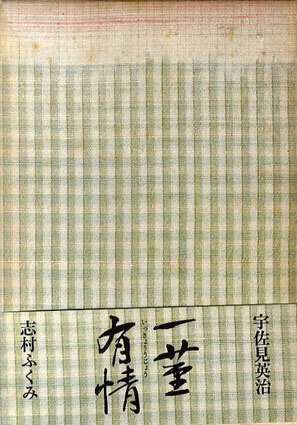 宇佐見英治
一茎
有情
いっきょううじょう
志村ふくみ